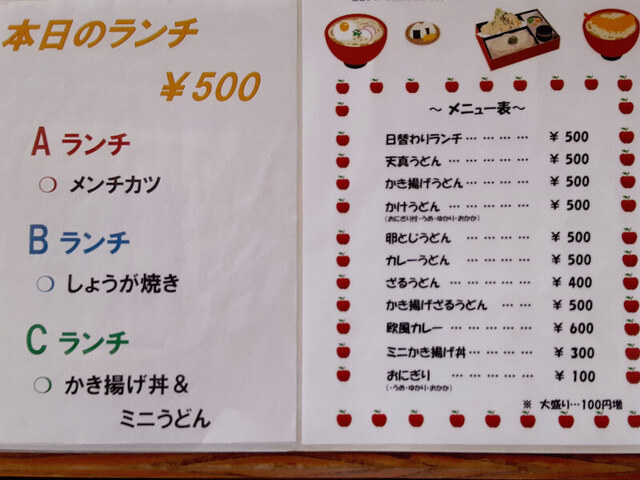 本日のランチ
￥500
A ランチ
○ メンチカツ
B ランチ
○ しょうが焼き
C ランチ
○ かき揚げ丼＆
ミニうどん
～ メニュー表～
日替わりランチ… … … … ￥ 500
天真うどん … … … … ￥ 500
かき揚げうどん… … … ￥ 500
かけうどん … … … … ￥ 500
(おにぎり付・うめ・ゆかり・おかか)
卵とじうどん … … … ￥ 500
カレーうどん … … … ￥ 500
ざるうどん … … … … ￥ 400
かき揚げざるうどん … … ￥ 500
欧風カレー … … … … ￥ 600
ミニかき揚げ丼… … … ￥ 300
おにぎり … … … … ￥ 100
(・うめ・ゆかり・おかか)
※ 大盛り…100円増